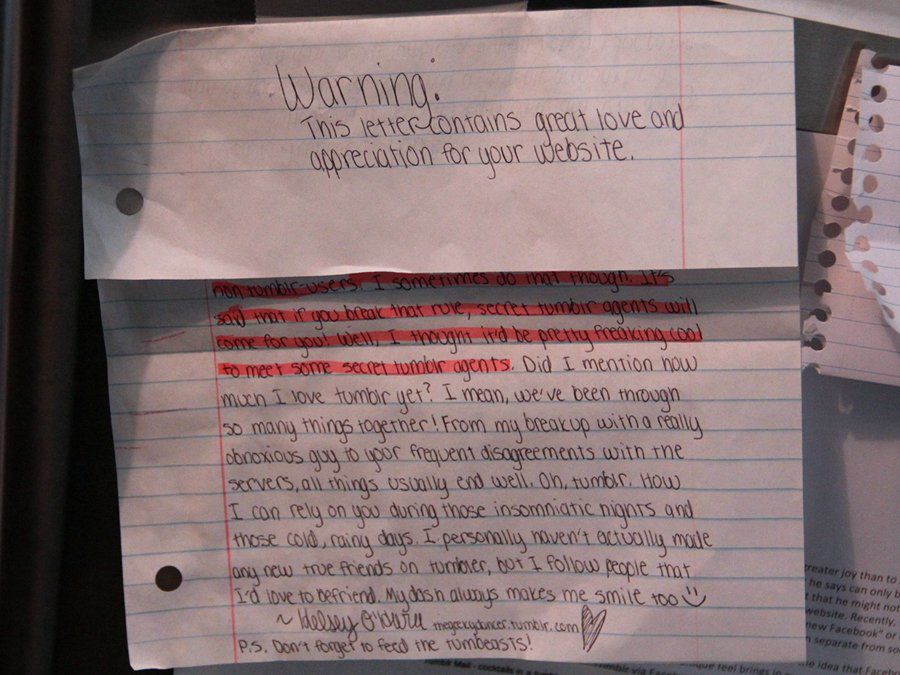 Warning:
This letter contains great love and
appreciation for your website.
non tumblr-users. I sometimes do that though. It's
said that if you break that rule, secret tumblr agents will
come for you! Well, I thought it'd be pretty freaking cool
to meet some secret tumblr agents. Did I mention how
much I love tumblr yet? I mean, we've been through
so many things together! From my breakup with a really
obnoxious guy to your frequent disagreements with the
servers, all things usually end well. Oh, tumblr. How
I can rely on you during those insomniatic nights and
those cold, rainy days. I personally haven't actually made
any new true friends on tumbler, but I follow people that
I'd love to befriend. My dash always makes me smile too
~ .tumblr.com
P.S. Don't forget to feed the tumbeasts!
reater joy than to
he says can only b
t that he might not
website. Recently,
new Facebook" or
n separate from so
the idea that Facebo
que feel brings in